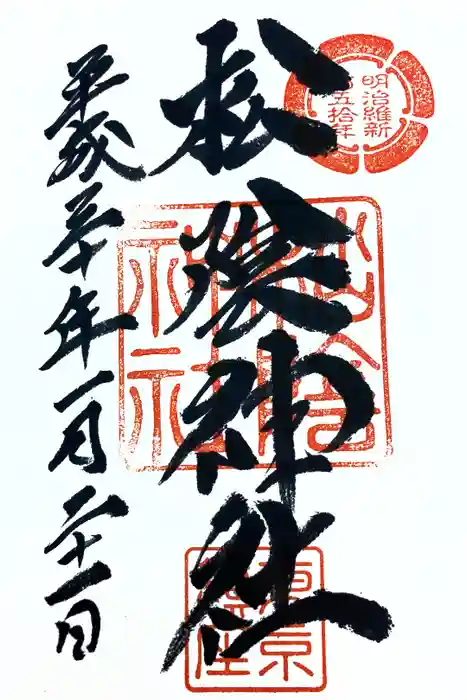 明治維新
百五拾年
松陰神社
松陰
神社
東京
平成三十年一月二十一日